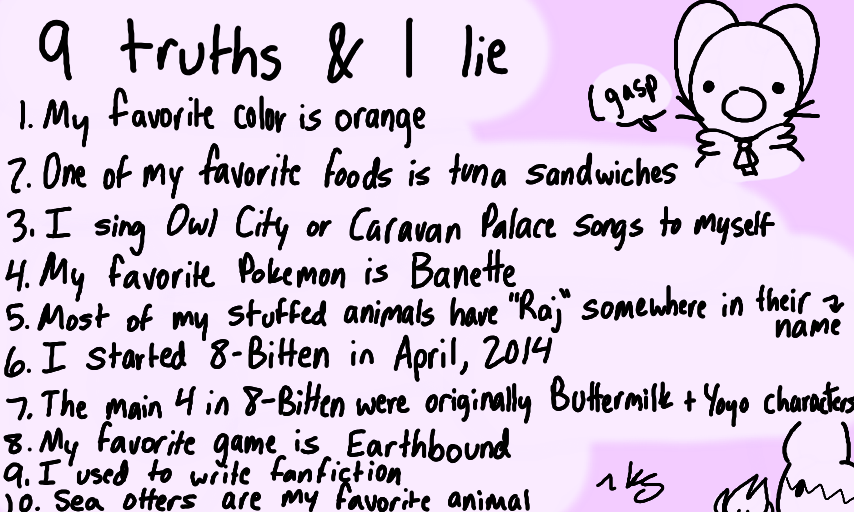 9 truths & 1 lie
gasp
1. My favorite color is orange
2. One of my favorite foods is tuna sandwiches
3. I sing Owl City or Caravan Palace songs to myself
4. My favorite Pokemon is Banette
5. Most of my stuffed animals have "Raj" somewhere in their
name
6. I started 8-Bitten in April, 2014
7. The main 4 in 8-Bitten were originally Buttermilk + Yoyo characters
8. My favorite game is Earthbound
9. I used to write fanfiction
10. Sea otters are my favorite animal
~ks